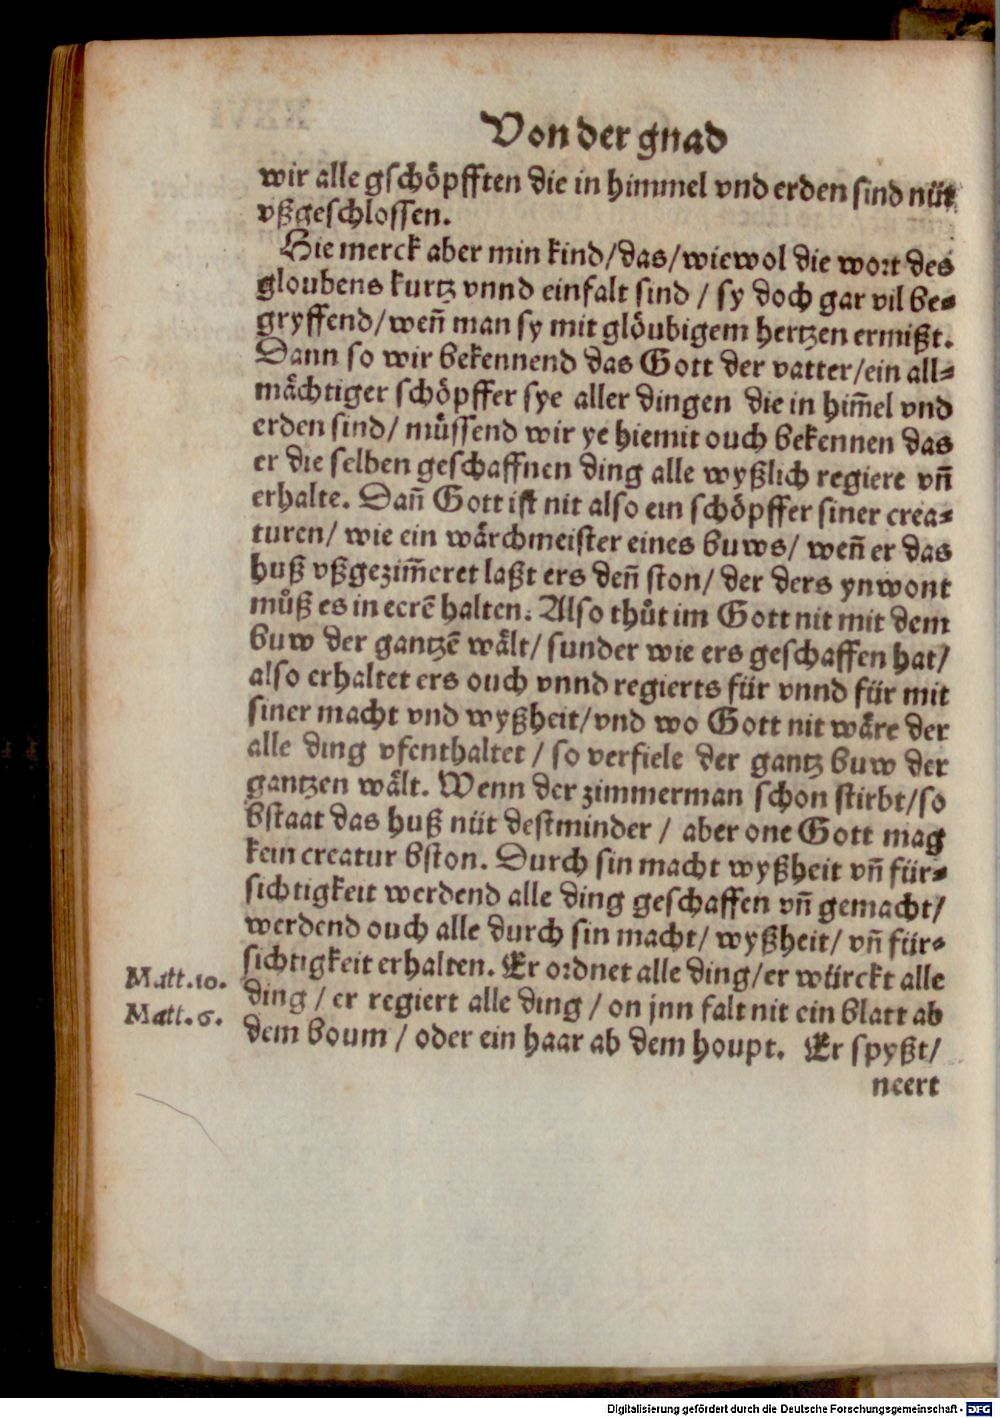 Von der gnad
wir alle gschöpfften die in himmel vnd erden sind nüt
vßgeschlossen.
Hie merck aber min kind/das/wiewol die wort des
gloubens kurtz vnnd einfalt sind / sy doch gar vil be-
gryffend/weñ man sy mit glöubigem hertzen ermißt.
Dann so wir bekennend das Gott der vatter/ein all-
mächtiger schöpffer sye aller dingen die in him̃el vnd
erden sind/ müssend wir ye hiemit ouch bekennen das
er die selben geschaffnen ding alle wyßlich regiere vñ
erhalte. Dañ Gott ist nit also ein schöpffer siner crea-
turen/ wie ein wärchmeister eines buws/ weñ er das
huß vßgezim̃eret laßt ers deñ ston/ der ders ynwont
můß es in eerẽ halten. Also thůt im Gott nit mit dem
buw der gantzẽ wält/ sunder wie ers geschaffen hat/
also erhaltet ers ouch vnnd regierts für vnnd für mit
siner macht vnd wyßheit/vnd wo Gott nit wäre der
alle ding vfenthaltet / so verfiele der gantz buw der
gantzen wält. Wenn der zimmerman schon stirbt/so
bstaat das huß nüt destminder / aber one Gott mag
kein creatur bston. Durch sin macht wyßheit vñ für-
sichtigkeit werdend alle ding geschaffen vñ gemacht/
werdend ouch alle durch sin macht/ wyßheit/ vñ für-
sichtigkeit erhalten. Er ordnet alle ding/er würckt alle
Matt.10.
ding / er regiert alle ding / on jnn falt nit ein blatt ab
Matt.6.
dem boum / oder ein haar ab dem houpt. Er spyßt/
neert
Digitalisierung gefördert durch die Deutsche Forschungsgemeinschaft - DFG